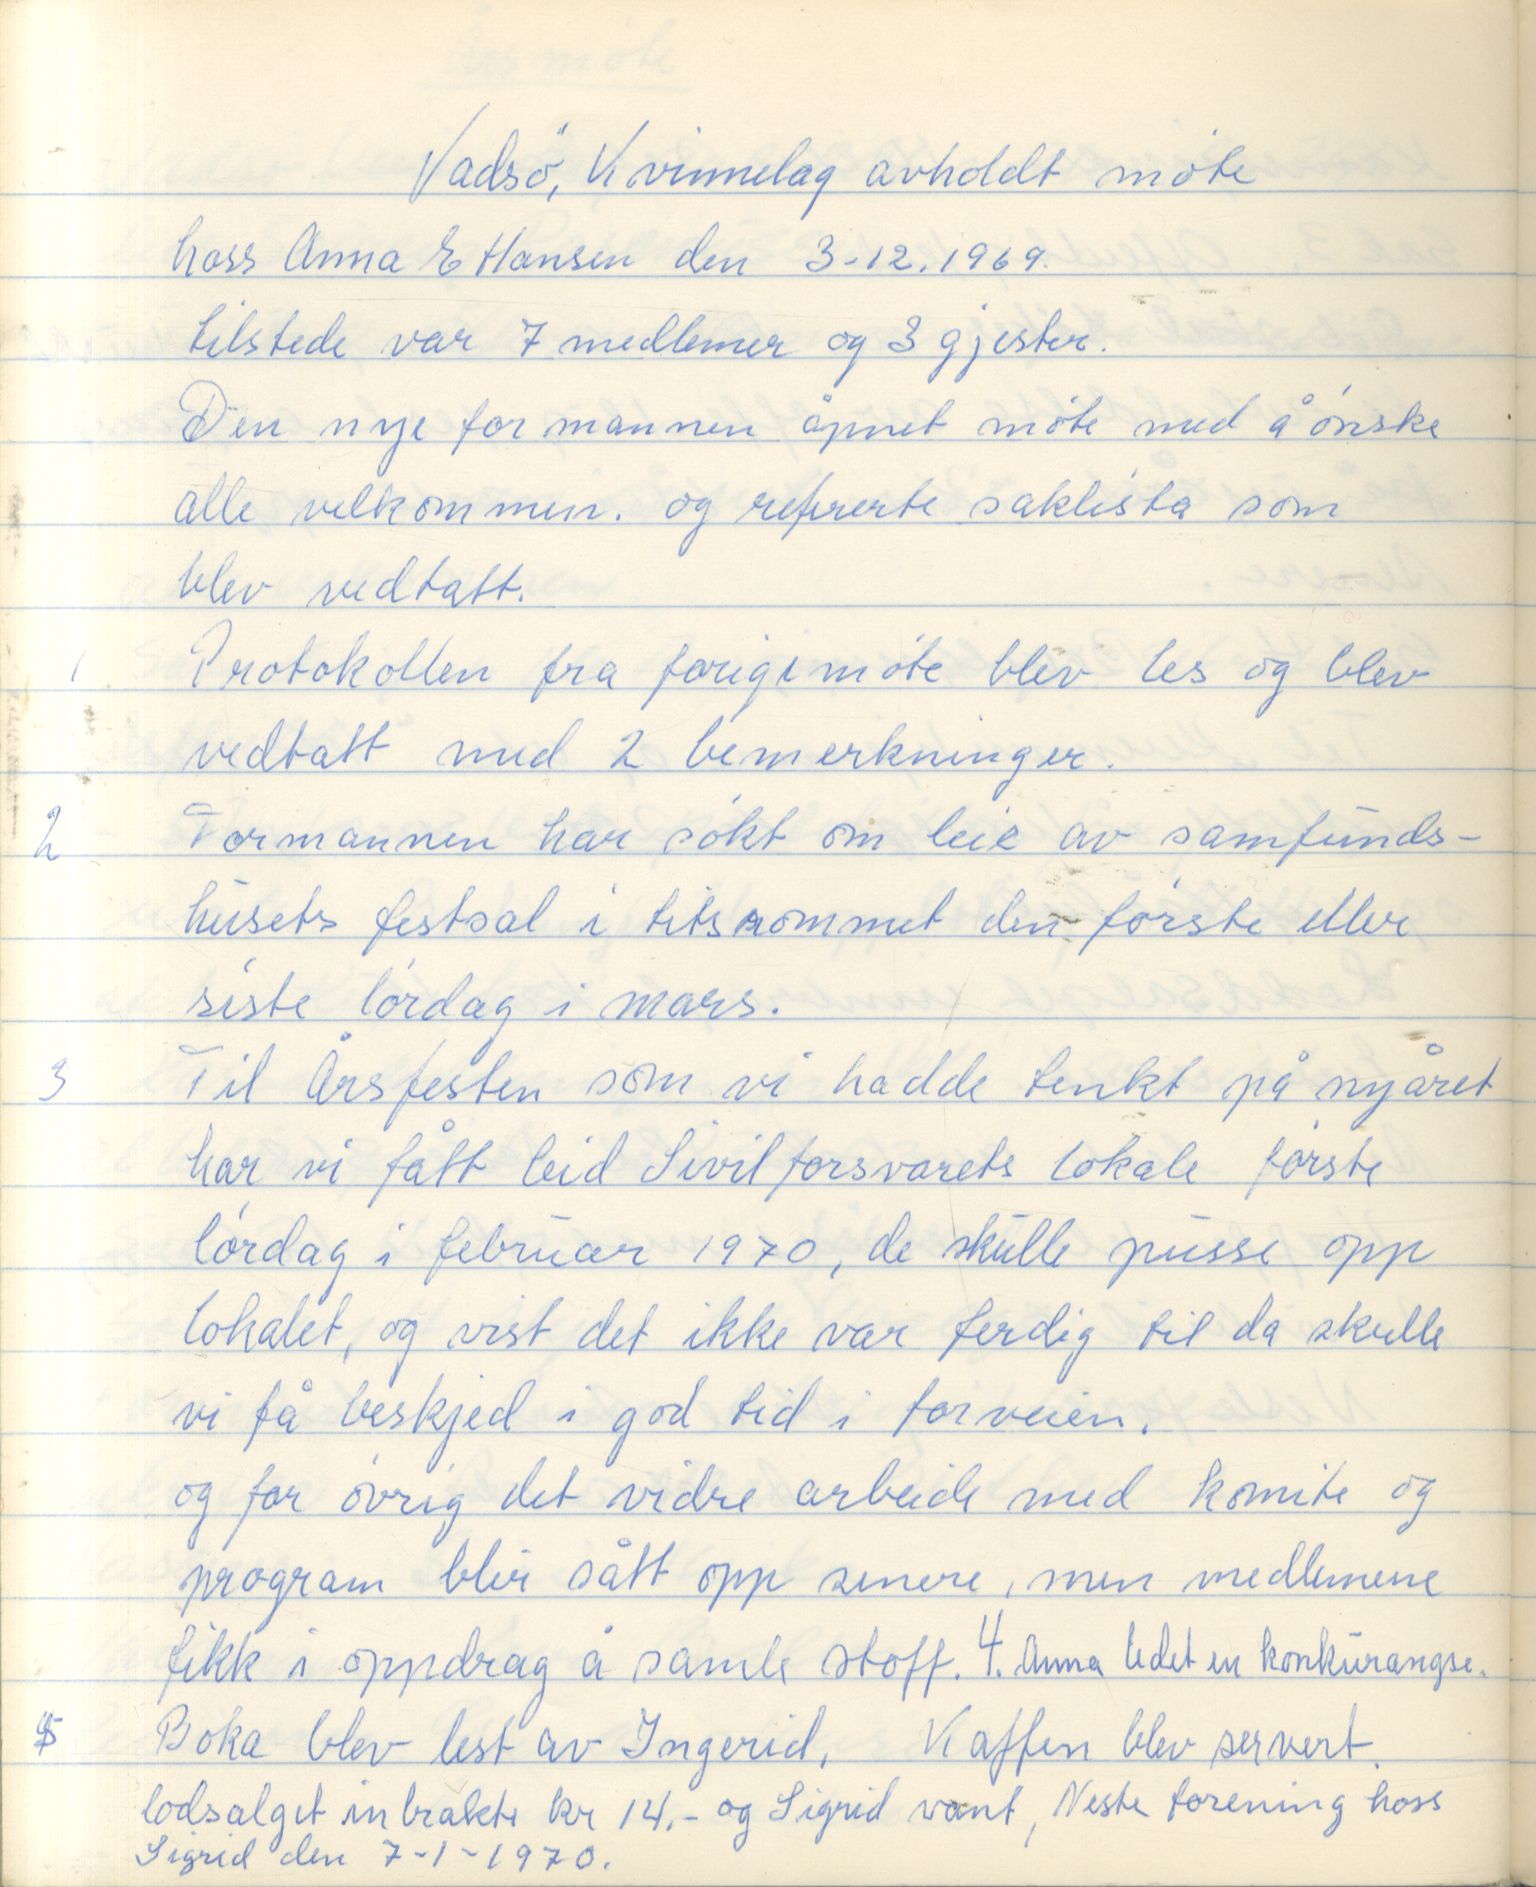 Vadsö, Kvinnelag avholdt möte
hoss Anna E Hansen den 3-12.1969.
tilstede var 7 medlemer og 3 gjester.
Den nye formannen åpnet möte med å önske
alle velkommen. og refrerte saklista som
blev vedtatt.
1 Protokollen fra forige möte blev les og blev
vedtatt med 2 bemerkninger.
2 Formannen har sökt om leie av samfunds-
husets festsal i titsrommet den förste eller
siste lördag i mars.
3 Til Årsfesten som vi hadde tenkt på nyåret
har vi fått leid Sivilforsvarets lokale förste
lördag i februar 1970, de skulle pusse opp
lokalet, og vist det ikke var ferdig til da skulle
vi få beskjed i god tid i forveien.
og for övrig det vidre arbeide med komite og
program blir sått opp senere, men medlemene
fikk i oppdrag å samle stoff. 4. Anna ledet en konkurangse.
5 Boka blev lest av Ingerid. Kaffen blev servert.
lodsalget inbrakte kr 14.- og Sigrid vant, Neste forening hoss
Sigrid den 7-1-1970.